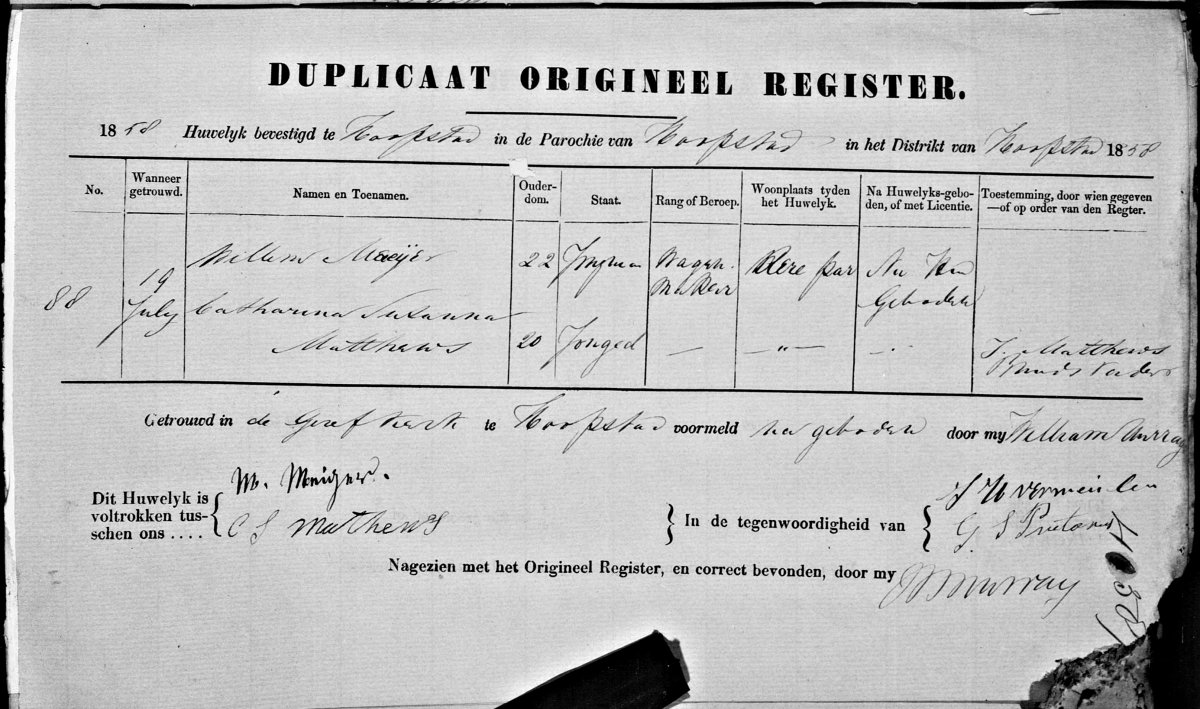 DUPLICAAT ORIGINEEL REGISTER.
1858 Huwelyk bevestigd te in de Parochie van in het Distrikt van 1858
No.
Wanneer getrouwd.
Namen en Toenamen.
Ouder-dom.
Staat.
Rang of Beroep.
Woonplaats tyden het Huwelyk.
Na Huwelyks-gebo-den, of met Licentie.
Toestemming, door wien gegeven —of op order van den Regter.
88
19 July
Willem Meeijer
22
Wagen
Maker
Geboden
Catharina Susanna
Matthews
20
Jonged
—
—"—
—
Matthews
Getrouwd in de Geref Kerk te voormeld na geboden door my William Murray
Dit Huwelyk is voltrokken tus-schen ons ....
W. Meijer.
C S Mathews
In de tegenwoordigheid van
Vermeulen
G. S
Nagezien met het Origineel Register, en correct bevonden, door my Murray